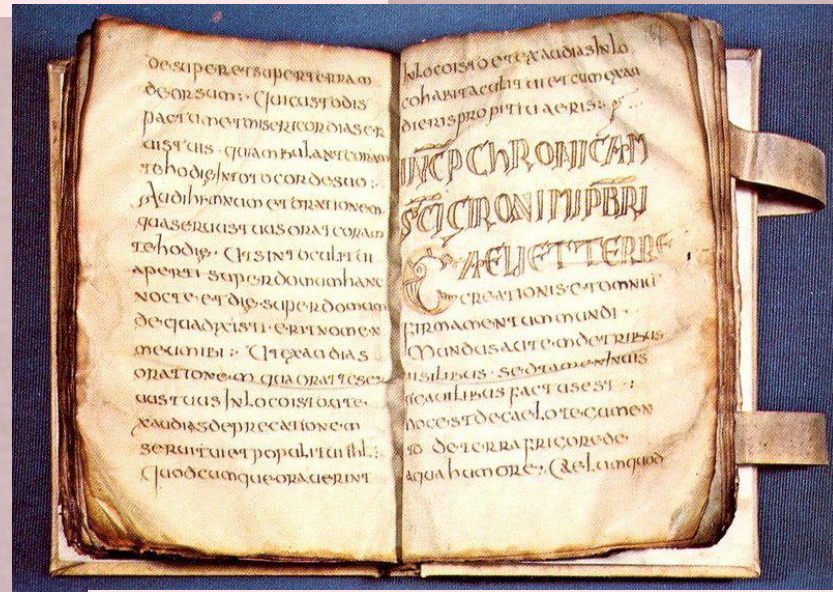 desuper et super terram
deorsum:· Qui custodis
pactum et misericordiaser
uis tuis · qui ambulant coram
te hodie In toto corde suo :·
Audi hymnum et orationem
quaservus tuus orat coram
te hodie · Ut sint oculi tui
aperti super domum hanc
nocte et die· super domum
de qua dixisti · erit nomen
meum ibi :· Ut exaudias
orationem qua orat te ser
uus tuus In loco isto et e
xaudias deprecationem
serui tui et populi tui
quodcumque orauerint
In loco isto et exaudias In lo
co habitaculi tui et cum exau
dieris propitiaueris :·
INCP CHRONICAM
SCI GIRONIMI PBRI
CAELI ET TERRE
CREATIONIS · ET OMNIU
firmamentum mundi ·
Mundus autem de tribus
uisilibus · sed tamen Inuis
factus est :·
hoc est de caelo tecumen
to de terra fricore de
aqua humore · Caelum quod